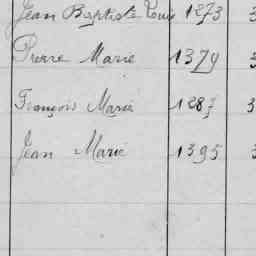 Jean Baptiste Louis 1273 3
Pierre Marie 1379 3
François Marie 1287 3
Jean Marie 1395 3